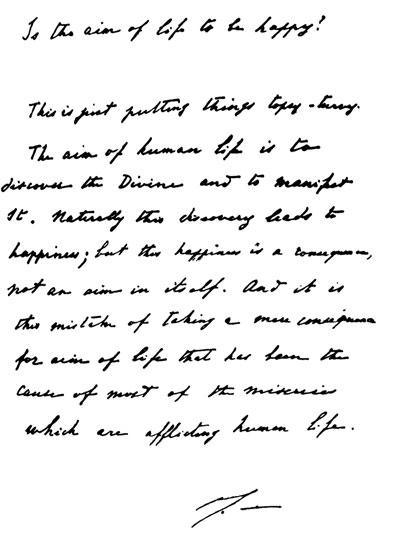 Is the aim of life to be happy?
This is just putting things topsy-turvy.
The aim of human life is to
discover the Divine and to manifest
It. Naturally this discovery leads to
happiness; but this happiness is a consequence,
not an aim in itself. And it is
this mistake of taking a mere consequence
for aim of life that has been the
cause of most of the miseries
which are afflicting human life.